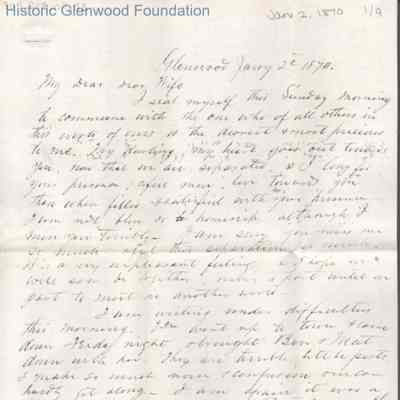 Historic Glenwood Foundation
Jany 2, 1870 1/9
Glenwood Jany 2d 1870.
My Dear dear Wife
I seat myself this Sunday morning
to commune with the one who of all others in
this world of ours is the dearest & most precious
to me. my heart goes out towards
you, now that we are separated & I long for
your presence, & feel more love toward you
than when filled & satisfied with your presence
I am not blue or although I
miss you terribly. I am sure you miss me
so much & feel this separation so much
It is a very unpleasant feeling. I hope we
will soon be together, never to part until we
part to meet in another world.
I am writing under difficulties
this morning. went up to town & came
down Friday night & brought Ben &
down with her. They are terrible little pests
& make so much noise & confusion one can
hardly get along. I am it was a